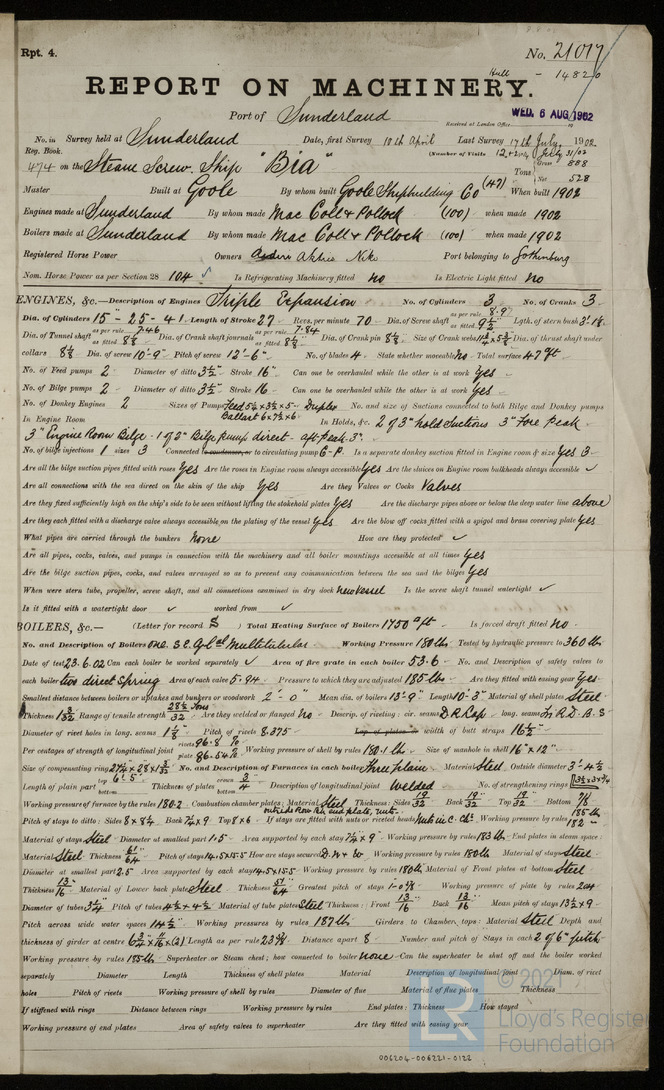 Rpt. 4.
No. 21017
Hull - 14820
REPORT ON MACHINERY.
Port of Sunderland
Received at London Office WED. 6 AUG 1902
No. in Survey held at Sunderland Date, first Survey 10th April Last Survey 17th July, 1902
Reg. Book. (Number of Visits
474 on the Steam Screw Ship "Bia" Tons Gross 888 Net 528
Master Built at Goole By whom built Goole Shipbuilding Co (47) When built 1902
Engines made at Sunderland By whom made Mac Coll & Pollock (100) when made 1902
Boilers made at Sunderland By whom made Mac Coll & Pollock (100) when made 1902
Registered Horse Power Owners Port belonging to Gothenburg
Nom. Horse Power as per Section 28 104 Is Refrigerating Machinery fitted no Is Electric Light fitted no
ENGINES, &c.—Description of Engines Triple Expansion No. of Cylinders 3 No. of Cranks 3
Dia. of Cylinders 15" - 25 - 41 Length of Stroke 27 Revs. per minute 70 Dia. of Screw shaft as per rule 8.97 as fitted 9½" Lgth. of stern bush
Dia. of Tunnel shaft as per rule 7.46 as fitted 8⅛ Dia. of Crank shaft journals as per rule 7.84 as fitted 8⅛" Dia. of Crank pin 8⅛ Size of Crank webs Dia. of thrust shaft under
collars 8⅛ Dia. of screw 10'-9" Pitch of screw 12'-6" No. of blades 4 State whether moveable No Total surface 47 ft
No. of Feed pumps 2 Diameter of ditto 3½" Stroke 16" Can one be overhauled while the other is at work Yes
No. of Bilge pumps 2 Diameter of ditto 3½" Stroke 16 Can one be overhauled while the other is at work Yes
No. of Donkey Engines 2 Sizes of Pumps Feed 5¼ x 3½ x 5 - Duplex Ballast 6 x 7½ x 6 No. and size of Suctions connected to both Bilge and Donkey pumps
In Engine Room In Holds, &c. 2 of 3" hold Suctions 3" Fore Peak
3" Engine Room Bilge - 1 of 2" Bilge pump direct - aft Peak 3".
No. of bilge injections 1 sizes 3 Connected to condenser, or to circulating pump C-P. Is a separate donkey suction fitted in Engine room & size Yes 3
Are all the bilge suction pipes fitted with roses Yes Are the roses in Engine room always accessible Yes Are the sluices on Engine room bulkheads always accessible ✓
Are all connections with the sea direct on the skin of the ship Yes Are they Valves or Cocks Valves
Are they fixed sufficiently high on the ship's side to be seen without lifting the stokehold plates Yes Are the discharge pipes above or below the deep water line above
Are they each fitted with a discharge valve always accessible on the plating of the vessel Yes Are the blow off cocks fitted with a spigot and brass covering plate Yes
What pipes are carried through the bunkers None How are they protected ✓
Are all pipes, cocks, valves, and pumps in connection with the machinery and all boiler mountings accessible at all times Yes
Are the bilge suction pipes, cocks, and valves arranged so as to prevent any communication between the sea and the bilges Yes
When were stern tube, propeller, screw shaft, and all connections examined in dry dock New Vessel Is the screw shaft tunnel watertight ✓
Is it fitted with a watertight door ✓ worked from ✓
BOILERS, &c.— (Letter for record S) Total Heating Surface of Boilers 1750 ft Is forced draft fitted No
No. and Description of Boilers One S.E. Cylcal Multitubular Working Pressure 180 lb Tested by hydraulic pressure to 360 lb
Date of test 23.6.02 Can each boiler be worked separately ✓ Area of fire grate in each boiler 53.6 No. and Description of safety valves to
each boiler two direct Spring Area of each valve 5.94 Pressure to which they are adjusted 185 lb Are they fitted with easing gear Yes
Smallest distance between boilers or uptakes and bunkers or woodwork 2'-0" Mean dia. of boilers 13'-9" Length 10'-3" Material of shell plates Steel
Thickness 1 3/32 Range of tensile strength 28½ 32 Tons Are they welded or flanged No Descrip. of riveting: cir. seams D R Lap long. seams Tr. R.D.B.S
Diameter of rivet holes in long. seams 1⅛" Pitch of rivets 8.375 Lap of plates or width of butt straps 16½"
Per centages of strength of longitudinal joint rivets 96.8 % plate 86.54 % Working pressure of shell by rules 180.1 lb Size of manhole in shell 16" x 12"
Size of compensating ring No. and Description of Furnaces in each boiler Three plain Material Steel Outside diameter 3'-4½
Length of plain part top 6'.5" bottom Thickness of plates crown ¾ bottom Description of longitudinal joint Welded No. of strengthening rings
Working pressure of furnace by the rules 180.2 Combustion chamber plates: Material Steel Thickness: Sides 19/32 Back 19/32 Top 19/32 Bottom
Pitch of stays to ditto: Sides 8 x 8¼ Back 7¼ x 9 Top 8 x 6 If stays are fitted with nuts or riveted heads Working pressure by rules
Material of stays Steel Diameter at smallest part 1.5 Area supported by each stay 7¼ x 9" Working pressure by rules 183 lb End plates in steam space:
Material Steel Thickness 61/64 Pitch of stays 14.5 x 15.5 How are stays secured D. N & W Working pressure by rules 180 lb Material of stays Steel
Diameter at smallest part 2.5 Area supported by each stay 14.5 x 15.5 Working pressure by rules 180 lb Material of Front plates at bottom Steel
Thickness 13/16 Material of Lower back plate Steel Thickness 51/64 Greatest pitch of stays Working pressure of plate by rules 204
Diameter of tubes 3¼ Pitch of tubes 4½ x 4½ Material of tube plates Steel Thickness: Front 13/16 Back 13/16 Mean pitch of stays 13½ x 9
Pitch across wide water spaces 14½" Working pressures by rules 187 lb Girders to Chamber tops: Material Steel Depth and
thickness of girder at centre Length as per rule 23¾ Distance apart 8 Number and pitch of Stays in each 2 of 6" pitch
Working pressure by rules 185 lb Superheater or Steam chest; how connected to boiler None Can the superheater be shut off and the boiler worked
separately Diameter Length Thickness of shell plates Material Description of longitudinal joint Diam. of rivet
holes Pitch of rivets Working pressure of shell by rules Diameter of flue Material of flue plates Thickness
If stiffened with rings Distance between rings Working pressure by rules End plates: Thickness How stayed
Working pressure of end plates Area of safety valves to superheater Are they fitted with easing gear
© 2021
Lloyd's Register
Foundation
006204-006221-0122